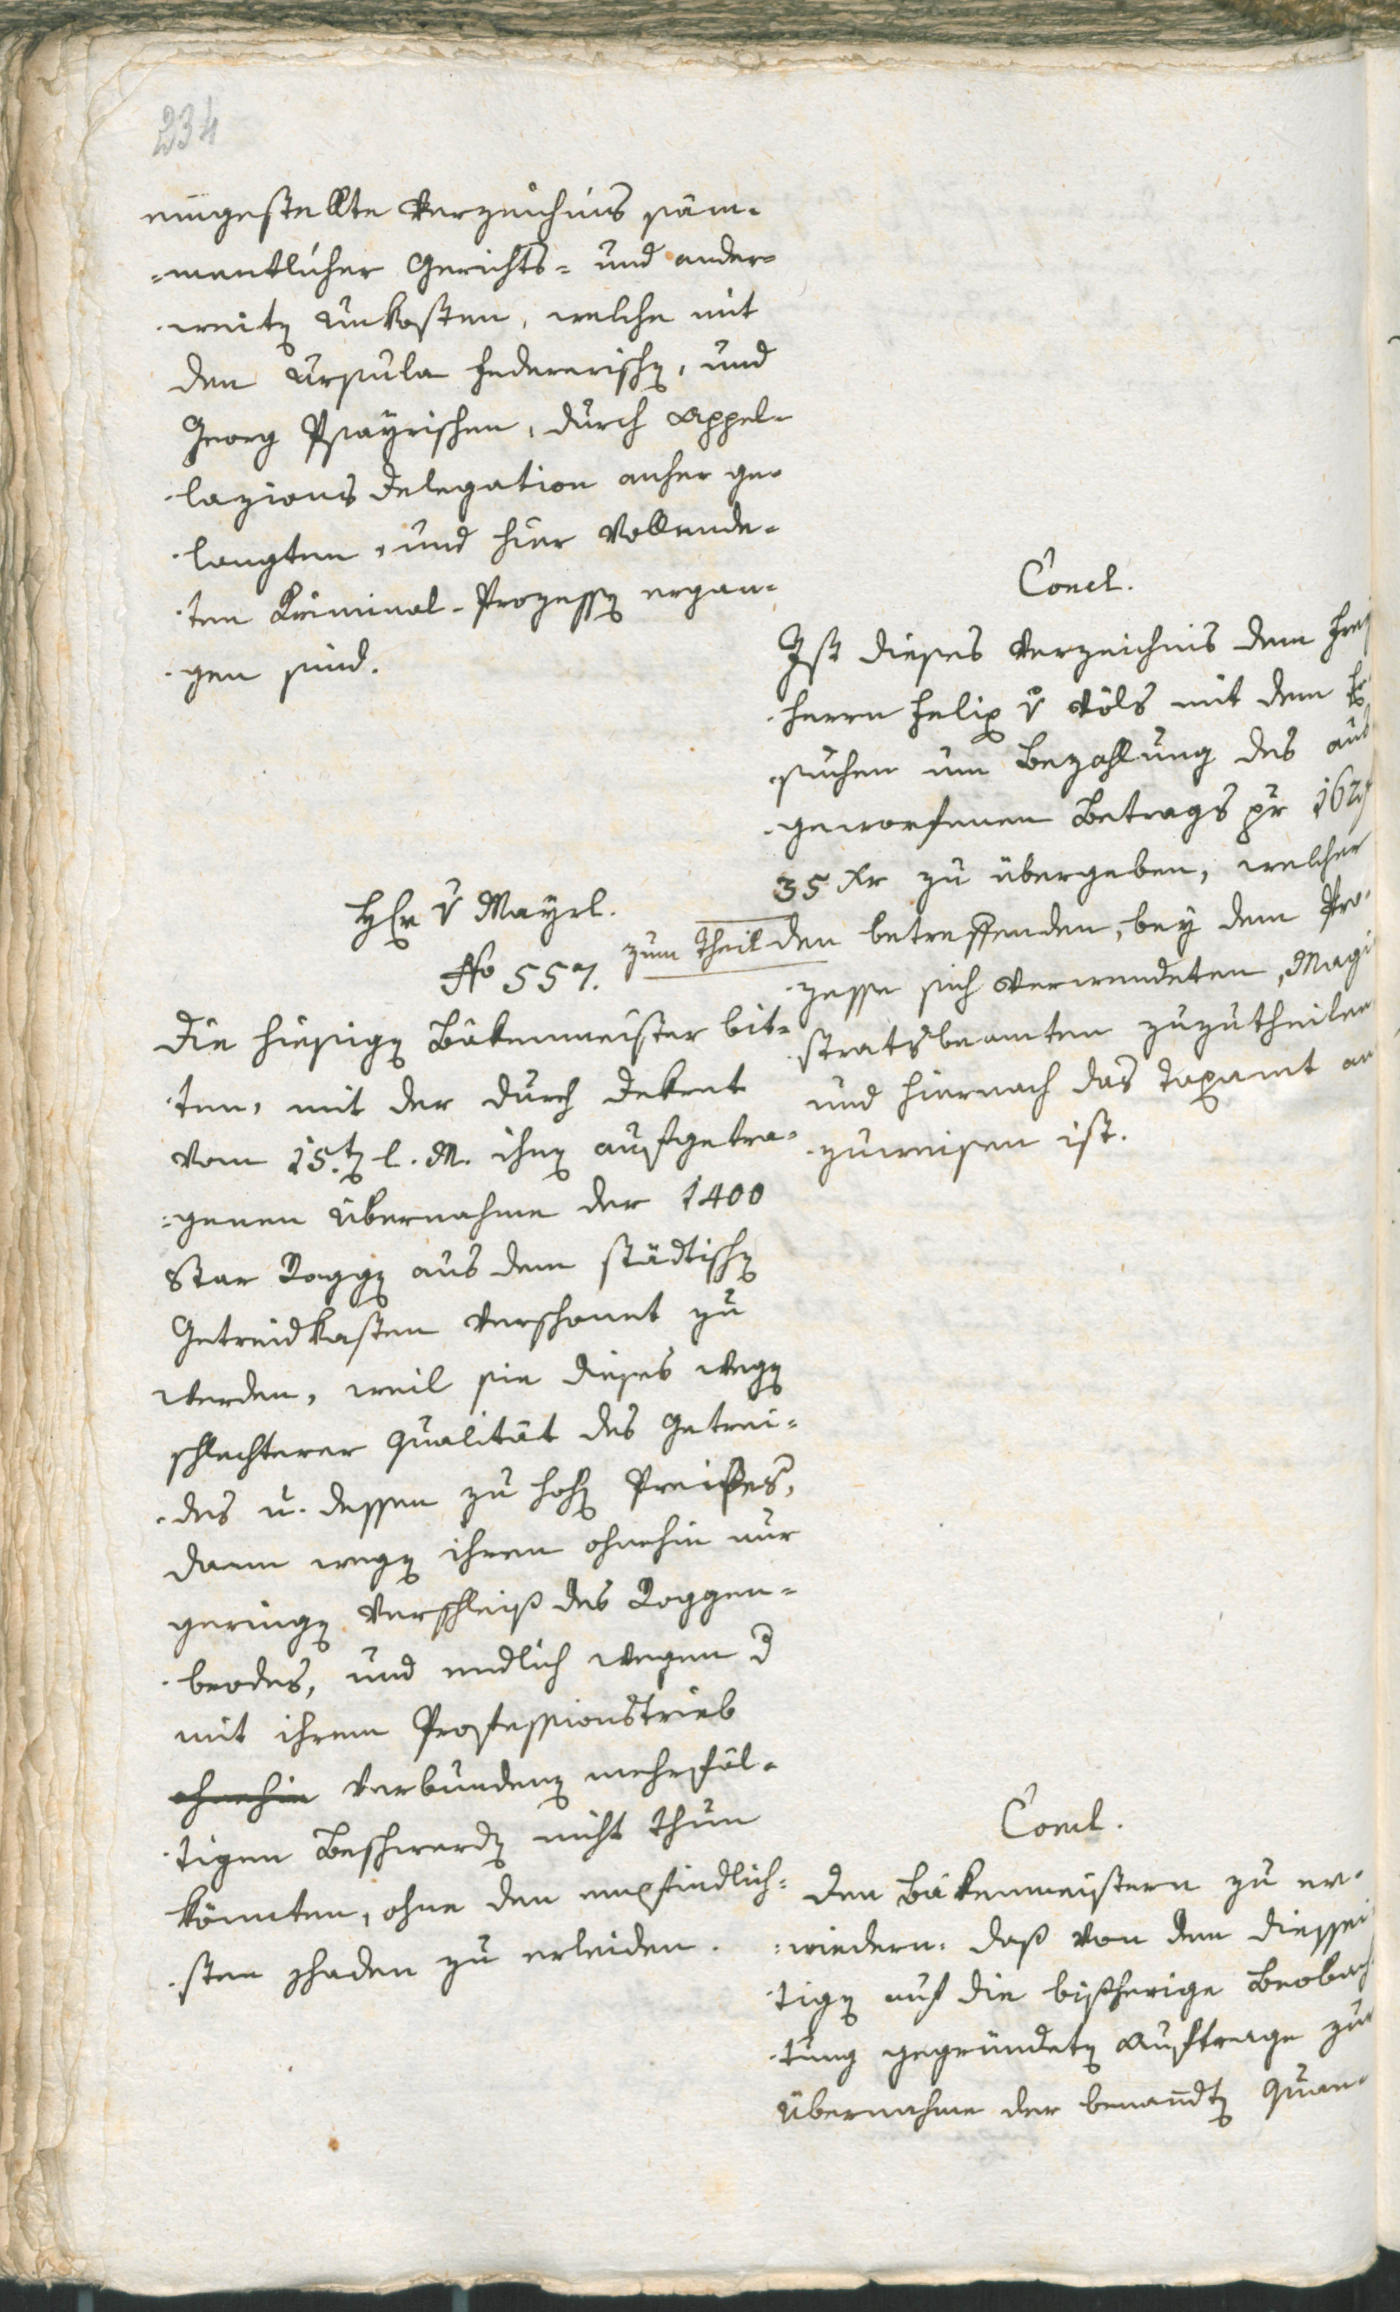 234
eingestellte Verzeichnis säm-
-mentlicher Gerichts- und ander-
-weitg Unkosten, welche mit
den Ursula Federerischg, und
Georg Psayrischen, durch Appel-
-lazions Delegation anher ge-
-langten, und hier Vollende-
-ten Kriminal-Prozessg ergan-
-gen sind.
Concl.
Ist dieses Verzeichnis dem Frey
-herrn Felix v Völs mit dem Er-
-suchen um Bezahlung des aus
-geworfenen Betrags pr 162f
35 Xr zu übergeben, welcher
zum Theil den betreffenden, bey dem Pro-
-zesse sich verwendeten, Magi
-stratsbeamten zuzutheilen
und hiernach das Taxamt an
-zuweisen ist.
Hr v Mayrl.
No 557.
Die hiesigg Bäkenmeister bit-
-ten, mit der durch Dekret
vom 15.tg l. M. ihng aufgetra-
-genen Übernahme der 1400
Star Roggg aus dem städtischg
Getreidkasten Verschonnt zu
werden, weil sie dieses wegg
schlechterer Qualität des Getrei-
-des u. dessen zu hohg Preises,
dann wegg ihrem ohnehin nur
geringg Verschleiß des Roggen-
-brodes, und endlich wegen d
mit ihrem Professionstrieb
ohnehin Verbundeng mehrfäl-
-tigen Beschwerdg nicht thun
könnten, ohne den empfindlich-
-sten Schaden zu erleiden.
Concl.
Den Bäkenmeistern zu er-
-wiedern: daß von dem diessei
-tigg auf die bißherige Beobach
-tung gegründetg Auftrage zur
Übernahme der benanndtg Quan-